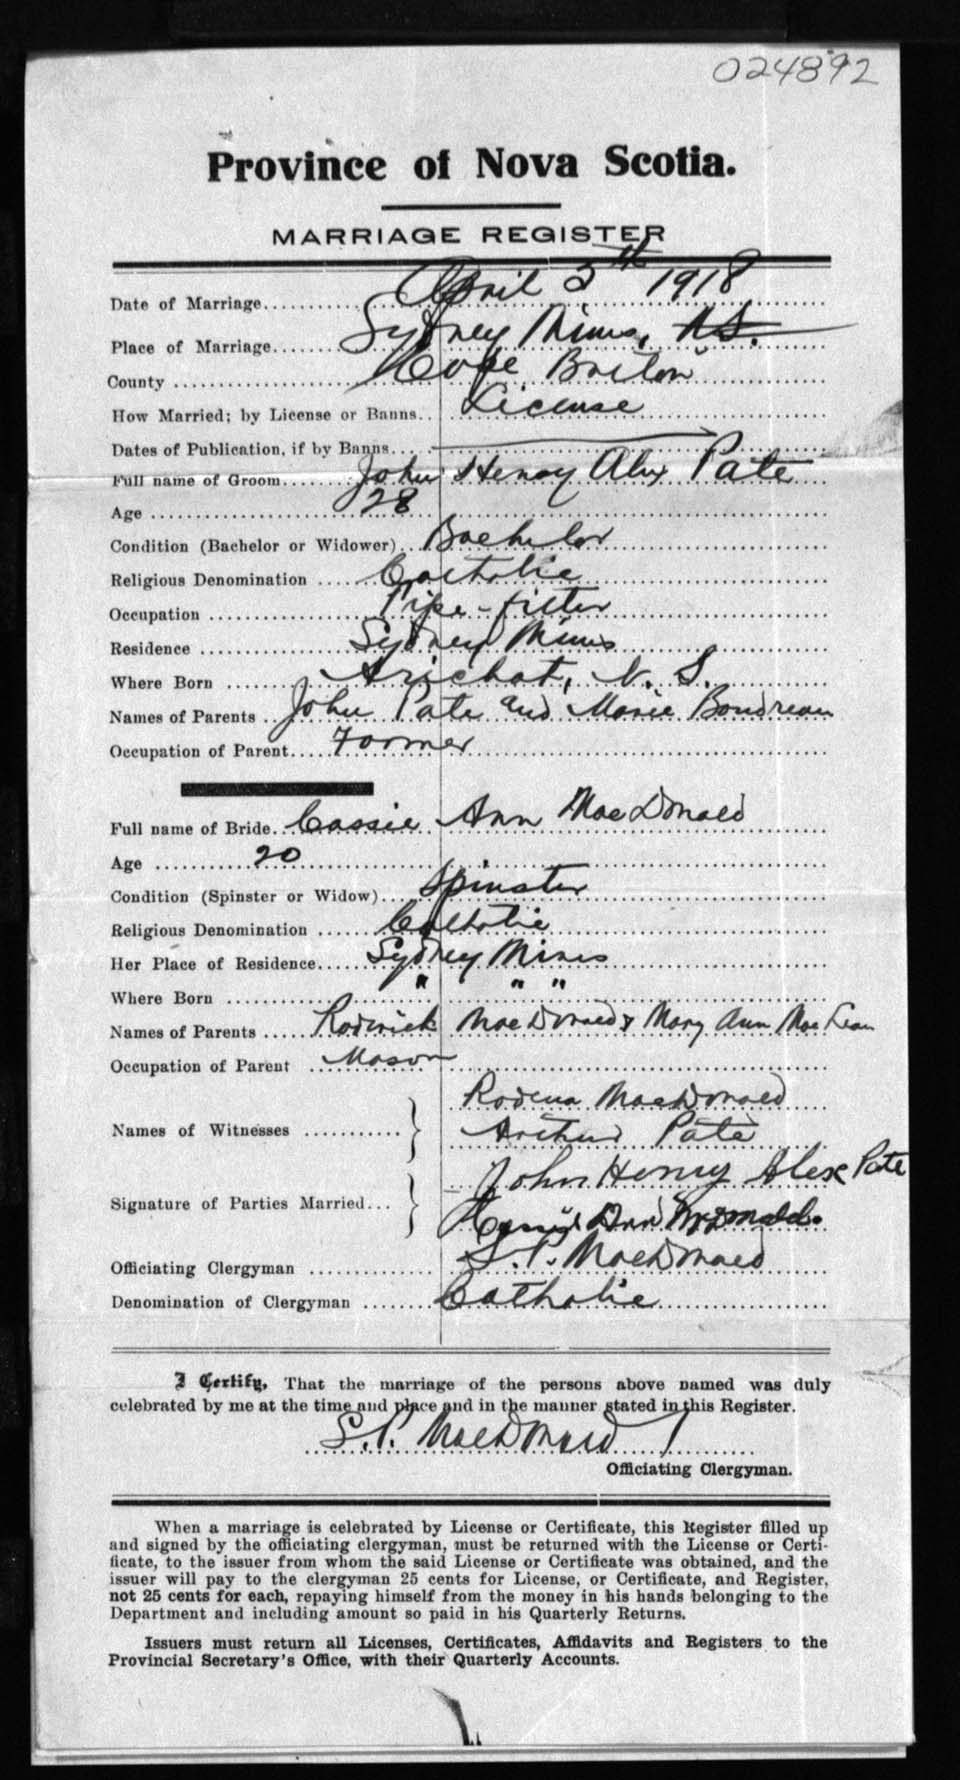 024892
Province of Nova Scotia.
MARRIAGE REGISTER
Date of Marriage.......... April 2th 1918
Place of Marriage....... Sydney Mines, N.S.
County .......... Cape Breton
How Married; by License or Banns.. License
Dates of Publication, if by Banns....
Full name of Groom...... John Henry Alex Pate
Age .......... 28
Condition (Bachelor or Widower).. Bachelor
Religious Denomination ..... Catholic
Occupation .......... Pipe-fitter
Residence .......... Sydney Mines
Where Born ....... Arichat, N. S.
Names of Parents .. John Pate and Marie Boudreau
Occupation of Parent.... Farmer
Full name of Bride.. Cassie Ann MacDonald
Age .......... 20
Condition (Spinster or Widow).... Spinster
Religious Denomination ..... Catholic
Her Place of Residence..... Sydney Mines
Where Born .......... " " "
Names of Parents ..... Roderick MacDonald & Mary Ann MacLean
Occupation of Parent .. Mason
Rodena MacDonald
Names of Witnesses ........... } Arthur Pate
John Henry Alex Pate
Signature of Parties Married... } Cassie Ann McDonald.
Officiating Clergyman ............ S. P. MacDonald
Denomination of Clergyman ....... Catholic
I Certify, That the marriage of the persons above named was duly
celebrated by me at the time and place and in the manner stated in this Register.
S. P. MacDonald
Officiating Clergyman.
When a marriage is celebrated by License or Certificate, this Register filled up
and signed by the officiating clergyman, must be returned with the License or Certi-
ficate, to the issuer from whom the said License or Certificate was obtained, and the
issuer will pay to the clergyman 25 cents for License, or Certificate, and Register,
not 25 cents for each, repaying himself from the money in his hands belonging to the
Department and including amount so paid in his Quarterly Returns.
Issuers must return all Licenses, Certificates, Affidavits and Registers to the
Provincial Secretary's Office, with their Quarterly Accounts.